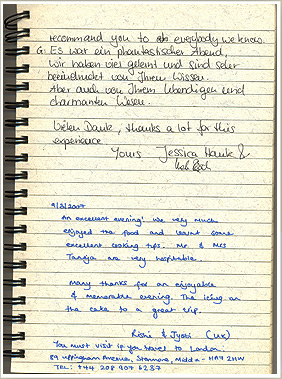 recommand you to everybody we know.
G: Es war ein phantastischer Abend,
wir haben viel gelernt und sind sehr
beeindruckt von Ihrem Wissen.
Aber auch von Ihrem lebendigen und
charmanten Wesen.
Vielen Dank, thanks a lot for this
experience
Yours Jessica Hauk &
9/3/2007
An excellent evening! We very much
enjoyed the food and learnt some
excellent cooking tips. Mr. & Mrs
Taneja are very hospitable.
Many thanks for an enjoyable
& memorable evening. The icing on
the cake to a great trip.
Rishi & Jyoti (UK)
You must visit if you travel to London:
89 Uppingham Avenue, Stanmore, Middx - HA7 2HW
TEL: +44 208 907 6287